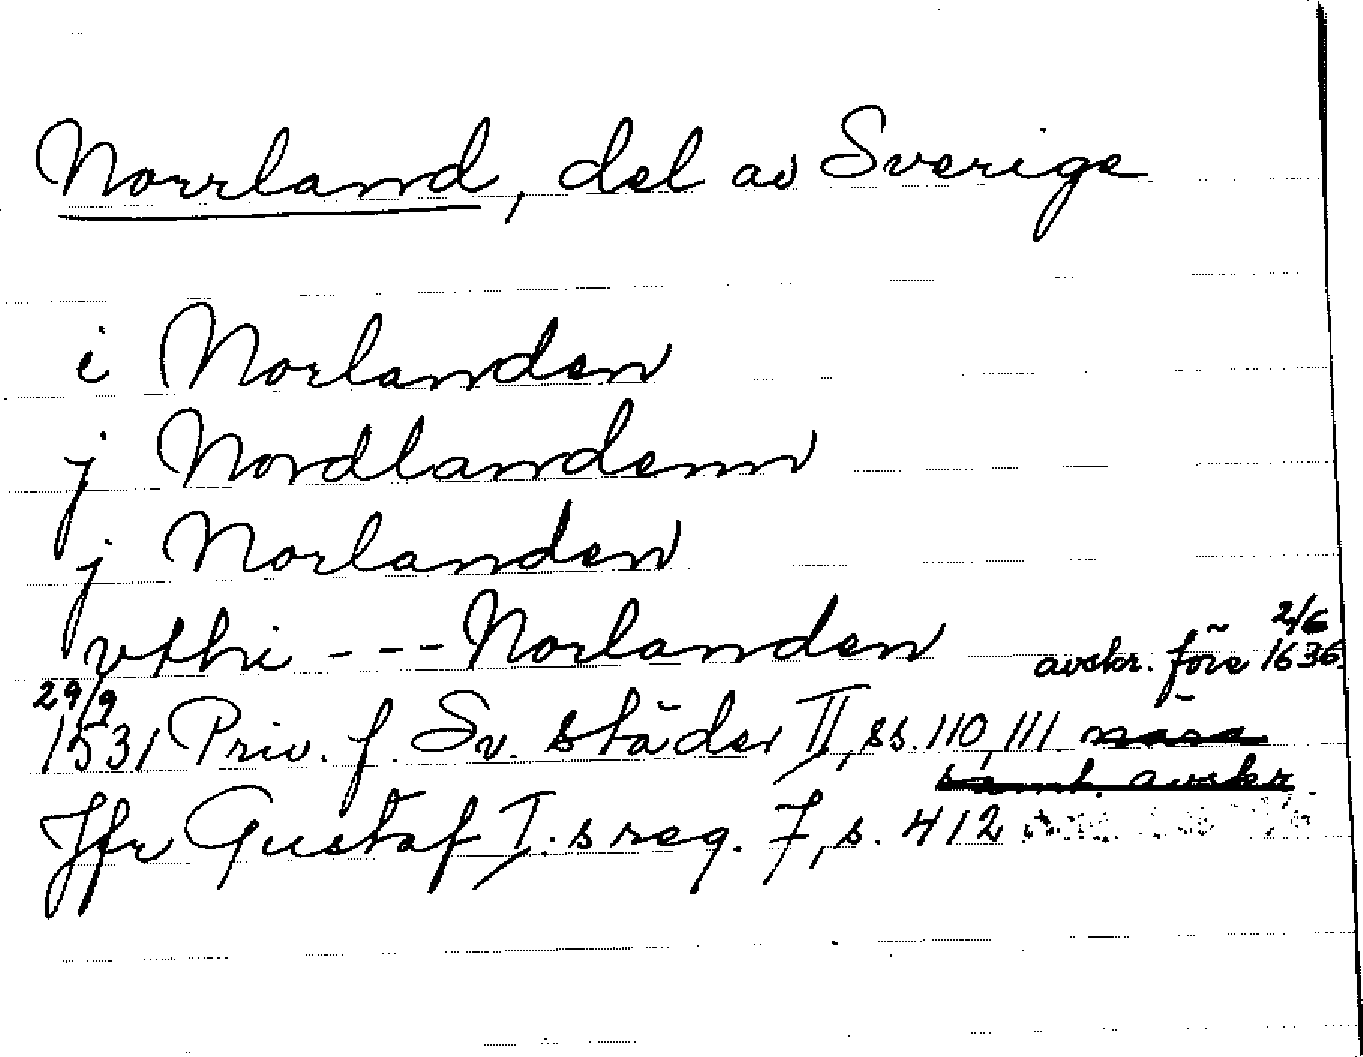 Norrland, del av Sverige
i Norlanden
j Nordlandenn
j Norlanden
vthi --- Norlanden avskr. före 2/6 1636
29/9 1531 Priv. f. Sv. städer II, ss. 110, 111 nära
samt. avskr.
Jfr Gustaf I.s reg. 7, s. 412